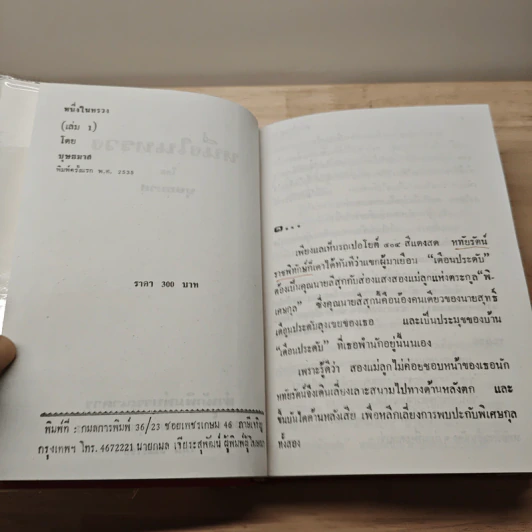 หนึ่งในทรวง
(เล่ม 1)
โดย
บุษยมาส
พิมพ์ครั้งแรก พ.ศ. 2538
ราคา 300 บาท
พิมพ์ที่ : กมลการพิมพ์ 36/23 ซอยเพชรเกษม 46 ภาษีเจริญ
กรุงเทพฯ โทร. 4672221 นายกมล เจียระสุพัฒน์ ผู้พิมพ์ผู้โฆษณา
๑...
เพียงแลเห็นรถเปอโยต์ ๔๐๔ สีแดงสด หทัยรัตน์
ราชพิทักษ์ก็เดาได้ทันทีว่าแขกผู้มาเยือน "เดือนประดับ"
ต้องเป็นคุณนายลีสุกกับสองแสงสองแม่ลูกแห่งตระกูล "พิ-
เศษกุล" ซึ่งคุณนายลีสุกนี้คือน้องคนเดียวของนายสุทธิ์
เดือนประดับลุงเขยของเธอ และเป็นประมุขของบ้าน
"เดือนประดับ" ที่เธอพำนักอยู่นี้นนเอง
เพราะรู้ดีว่า สองแม่ลูกไม่ค่อยชอบหน้าของเธอนัก
หทัยรัตน์จึงเดินเลี่ยงเลาะสนามไปทางด้านหลังตึก และ
ขึ้นบันไดด้านหลังเสีย เพื่อหลีกเลี่ยงการพบปะกับพิเศษกุล
ทั้งสอง